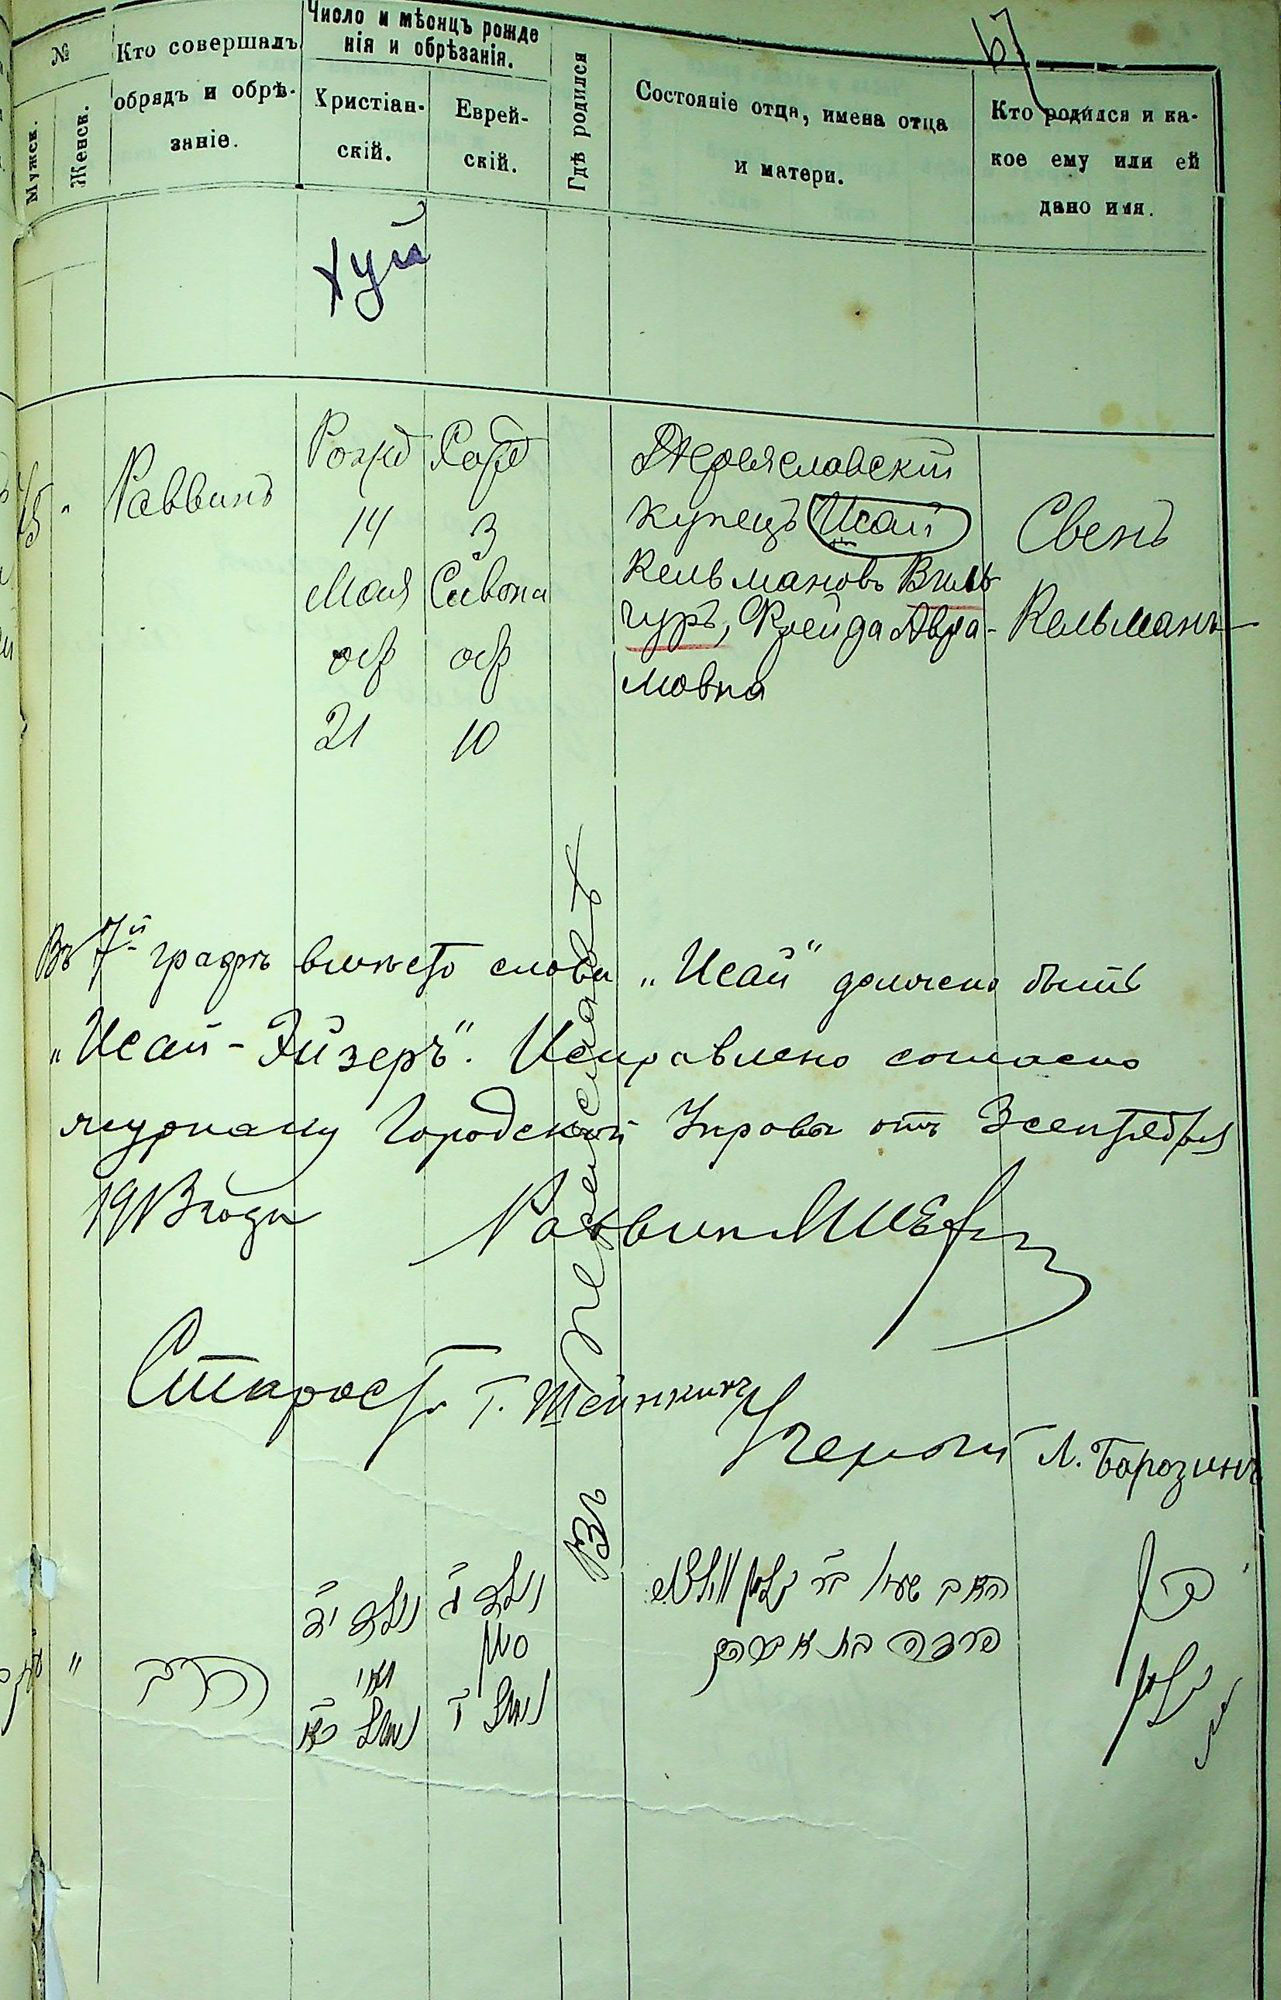 67
№
Мужск.
Женск.
Кто совершалъ
обрядъ и обрѣ-
заніе.
Число и мѣсяцъ рожде
нія и обрѣзанія.
Христіан-
скій.
Еврей-
скій.
Гдѣ родился
Состояніе отца, имена отца
и матери.
Кто родился и ка-
кое ему или ей
дано имя.
хуй
Раввинъ
Рожд
14
Мая
обр
21
3
Сивана
обр
10
Переяславскій
купецъ Исай
Кельмановъ Виль
гуръ, Фрейда Авра-
мовна
Свенъ
Кельманъ
Въ Переяславѣ
Въ 7й графѣ вмѣсто слова „Исай" должно быть
„Исай-Эйзеръ". Исправлено согласно
журналу Городской Управы отъ 3 сентября
1913 года Раввинъ
Староста Г. Шейнкинъ
Ученый Л. Барозинъ
הרב
נולד יד
מאי
נימול כא
נולד ג
סיון
נימול י